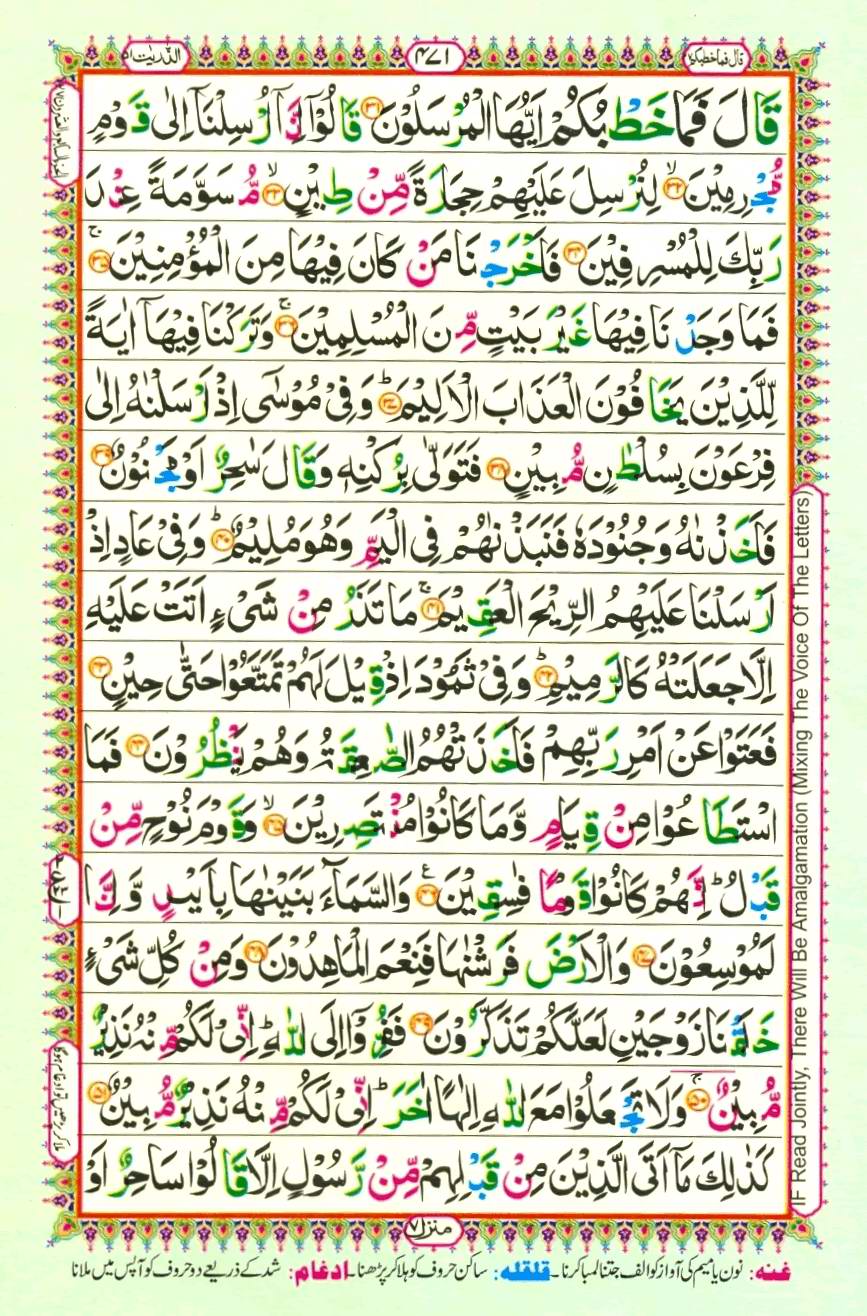 قال فما خطبكم ٢٧
٤٧١
الذّٰریٰت ٥١
قَالَ فَمَا خَطْبُكُمْ اَيُّهَا الْمُرْسَلُوْنَ ﴿۳۱﴾ قَالُوْۤا اِنَّاۤ اُرْسِلْنَاۤ اِلٰى قَوْمٍ
مُّجْرِمِيْنَ ۙ﴿۳۲﴾ لِنُرْسِلَ عَلَيْهِمْ حِجَارَةً مِّنْ طِيْنٍ ۙ﴿۳۳﴾ مُّسَوَّمَةً عِنْدَ
رَبِّكَ لِلْمُسْرِفِيْنَ ﴿۳۴﴾ فَاَخْرَجْنَا مَنْ كَانَ فِيْهَا مِنَ الْمُؤْمِنِيْنَ ۚ﴿۳۵﴾
فَمَا وَجَدْنَا فِيْهَا غَيْرَ بَيْتٍ مِّنَ الْمُسْلِمِيْنَ ۚ﴿۳۶﴾ وَتَرَكْنَا فِيْهَاۤ اٰيَةً
لِّلَّذِيْنَ يَخَافُوْنَ الْعَذَابَ الْاَلِيْمَ ؕ﴿۳۷﴾ وَفِيْ مُوْسٰۤى اِذْ اَرْسَلْنٰهُ اِلٰى
فِرْعَوْنَ بِسُلْطٰنٍ مُّبِيْنٍ ﴿۳۸﴾ فَتَوَلّٰى بِرُكْنِهٖ وَقَالَ سٰحِرٌ اَوْ مَجْنُوْنٌ ﴿۳۹﴾
فَاَخَذْنٰهُ وَجُنُوْدَهٗ فَنَبَذْنٰهُمْ فِي الْيَمِّ وَهُوَ مُلِيْمٌ ؕ﴿۴۰﴾ وَفِيْ عَادٍ اِذْ
اَرْسَلْنَا عَلَيْهِمُ الرِّيْحَ الْعَقِيْمَ ۚ﴿۴۱﴾ مَا تَذَرُ مِنْ شَيْءٍ اَتَتْ عَلَيْهِ
اِلَّا جَعَلَتْهُ كَالرَّمِيْمِ ؕ﴿۴۲﴾ وَفِيْ ثَمُوْدَ اِذْ قِيْلَ لَهُمْ تَمَتَّعُوْا حَتّٰى حِيْنٍ ﴿۴۳﴾
فَعَتَوْا عَنْ اَمْرِ رَبِّهِمْ فَاَخَذَتْهُمُ الصّٰعِقَةُ وَهُمْ يَنْظُرُوْنَ ﴿۴۴﴾ فَمَا
اسْتَطَاعُوْا مِنْ قِيَامٍ وَّمَا كَانُوْا مُنْتَصِرِيْنَ ۙ﴿۴۵﴾ وَقَوْمَ نُوْحٍ مِّنْ
قَبْلُ ؕ اِنَّهُمْ كَانُوْا قَوْمًا فٰسِقِيْنَ ﴿۴۶﴾ ع وَالسَّمَآءَ بَنَيْنٰهَا بِاَيْىدٍ وَّاِنَّا
لَمُوْسِعُوْنَ ﴿۴۷﴾ وَالْاَرْضَ فَرَشْنٰهَا فَنِعْمَ الْمَاهِدُوْنَ ﴿۴۸﴾ وَمِنْ كُلِّ شَيْءٍ
خَلَقْنَا زَوْجَيْنِ لَعَلَّكُمْ تَذَكَّرُوْنَ ﴿۴۹﴾ فَفِرُّوْۤا اِلَى اللّٰهِ ؕ اِنِّيْ لَكُمْ مِّنْهُ نَذِيْرٌ
مُّبِيْنٌ ۚ﴿۵۰﴾ وَلَا تَجْعَلُوْا مَعَ اللّٰهِ اِلٰهًا اٰخَرَ ؕ اِنِّيْ لَكُمْ مِّنْهُ نَذِيْرٌ مُّبِيْنٌ ﴿۵۱﴾
كَذٰلِكَ مَاۤ اَتَى الَّذِيْنَ مِنْ قَبْلِهِمْ مِّنْ رَّسُوْلٍ اِلَّا قَالُوْا سَاحِرٌ اَوْ
IF Read Jointly, There Will Be Amalgamation (Mixing The Voice Of The Letters)
منزل ٧
غنه: نون یا میم کی آواز کو الف جتنا لمبا کرنا۔ قلقله: ساکن حروف کو ہلا کر پڑھنا۔ ادغام: شد کے ذریعے دو حروف کو آپس میں ملانا